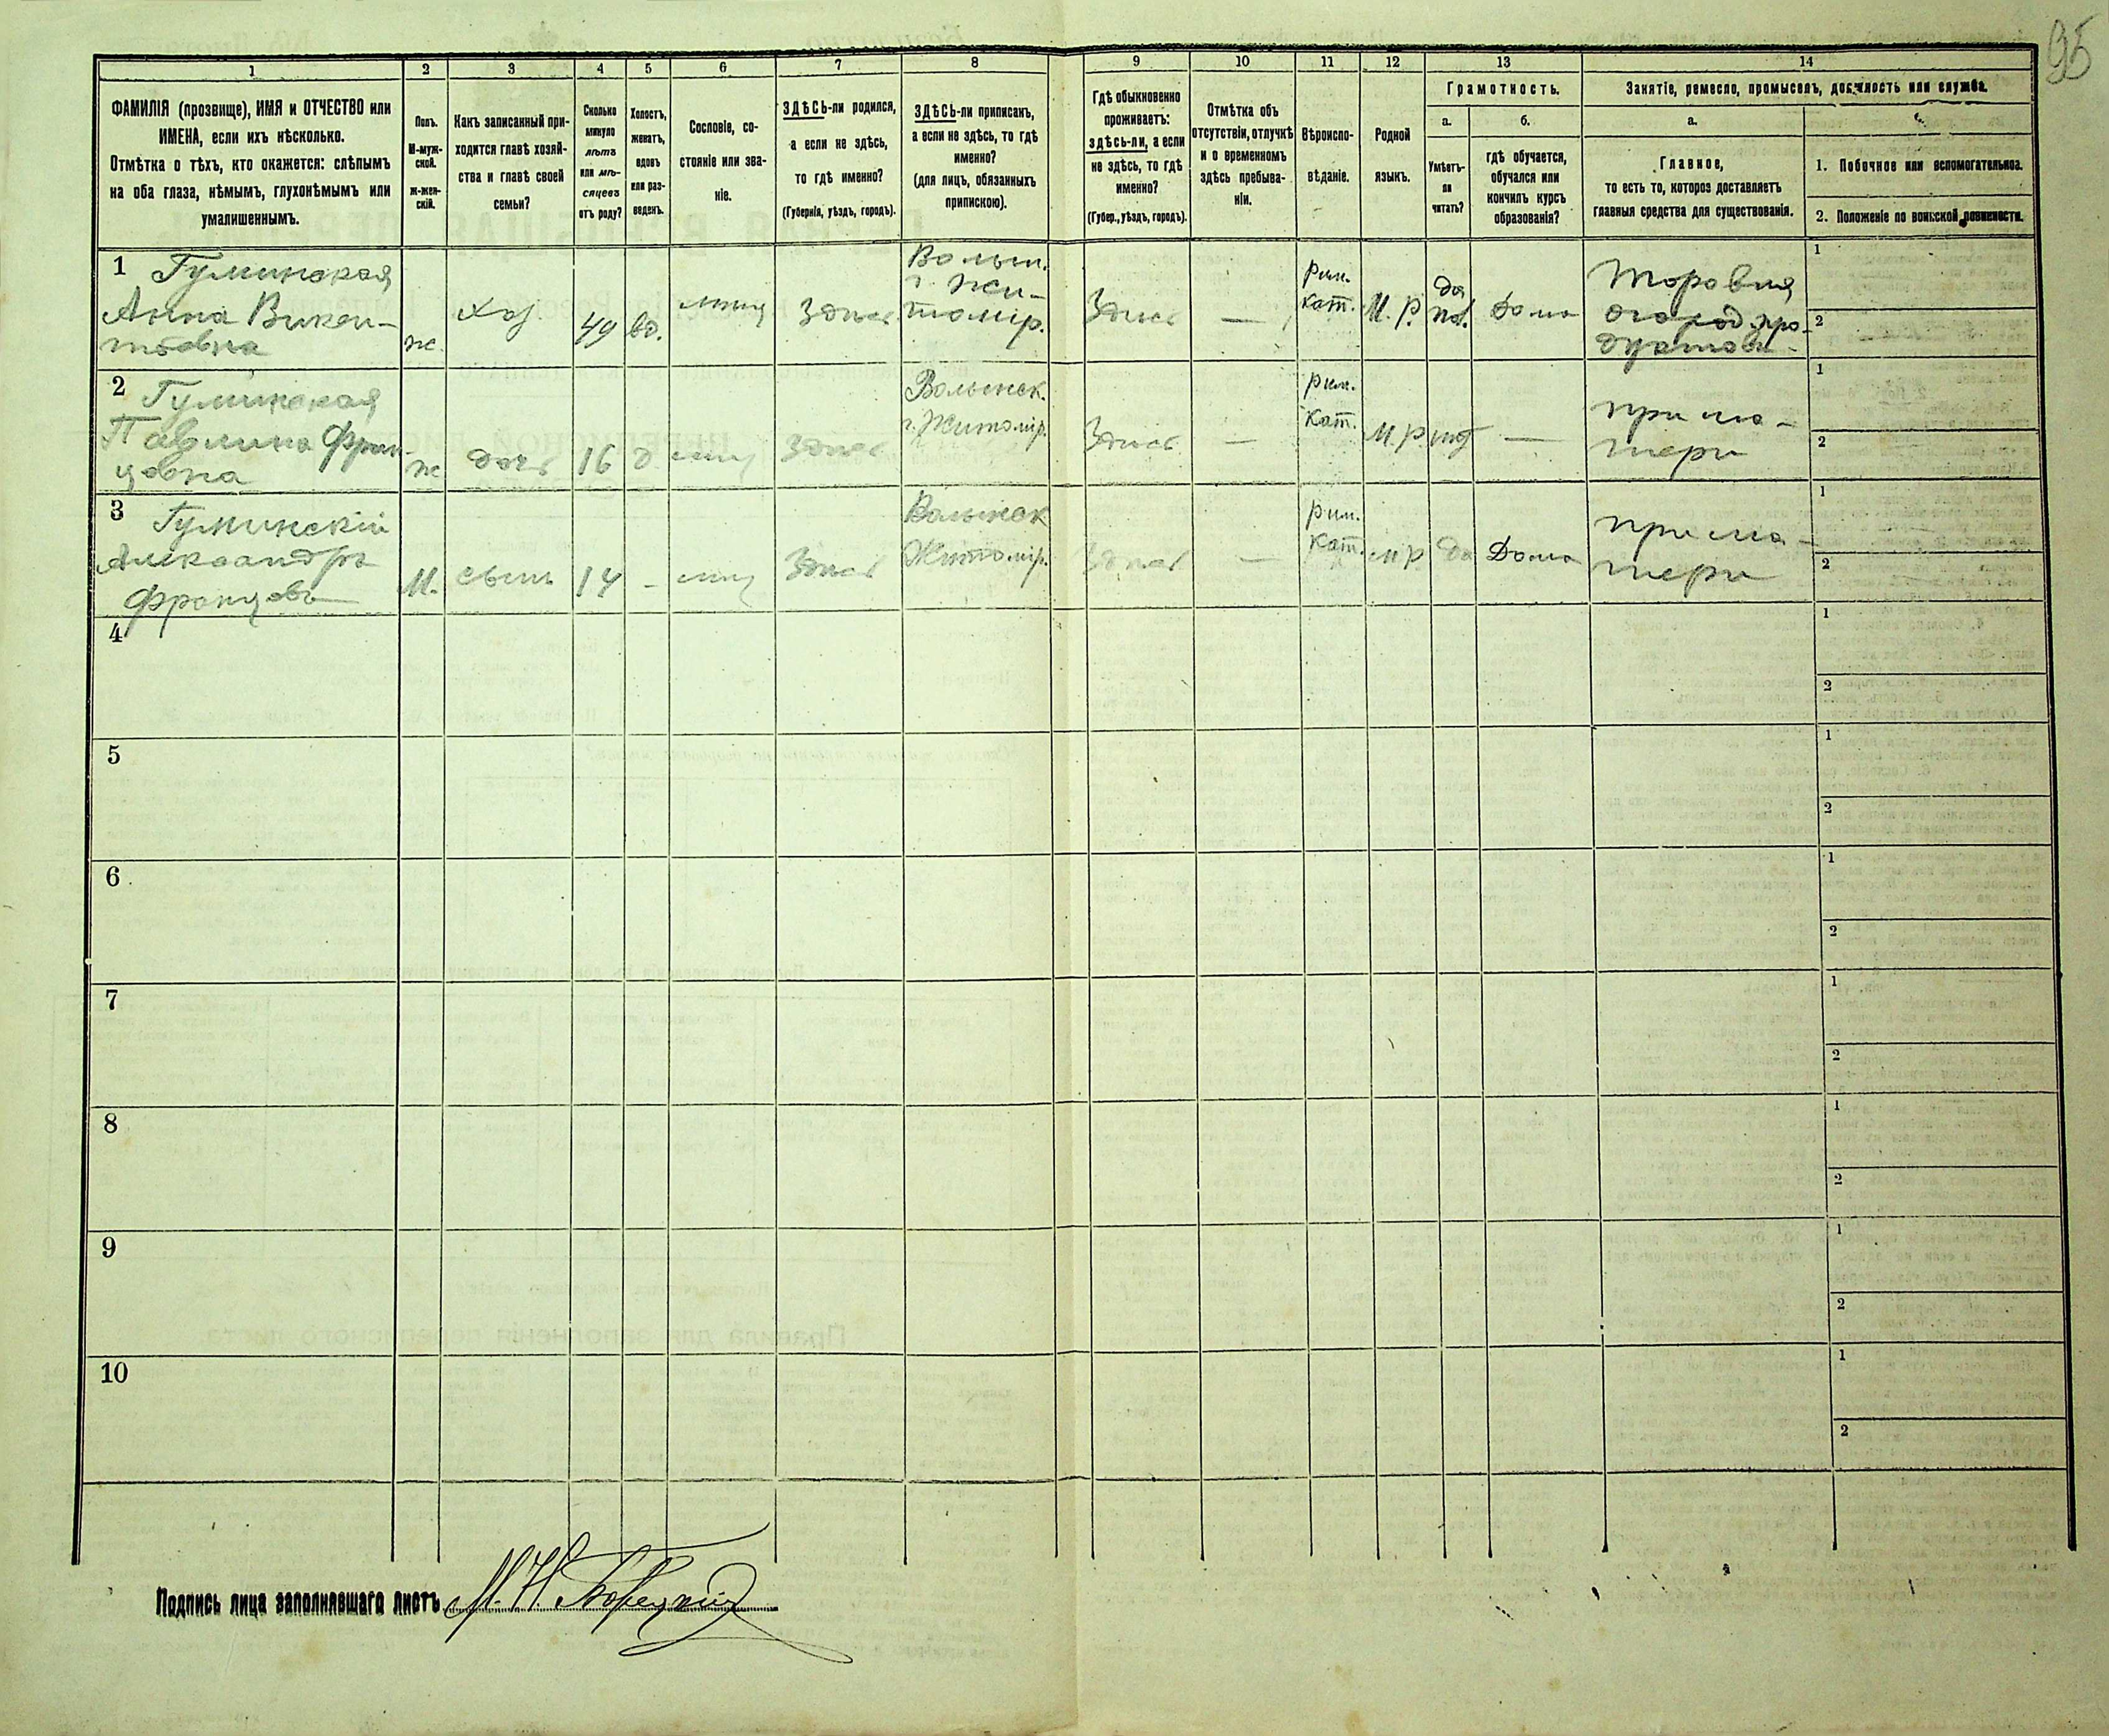 95
1 2 3 4 5 6 7 8 9 10 11 12 13 14
ФАМИЛІЯ (прозвище), ИМЯ и ОТЧЕСТВО или
ИМЕНА, если ихъ нѣсколько.
Отмѣтка о тѣхъ, кто окажется: слѣпымъ
на оба глаза, нѣмымъ, глухонѣмымъ или
умалишеннымъ.
Полъ.
М-муж-
ской.
ж-жен-
скій.
Какъ записанный при-
ходится главѣ хозяй-
ства и главѣ своей
семьи?
Сколько
минуло
лѣтъ
или мѣ-
сяцевъ
отъ роду?
Холостъ,
женатъ,
вдовъ
или раз-
веденъ.
Сословіе, со-
стояніе или зва-
ніе.
ЗДѢСЬ-ли родился,
а если не здѣсь,
то гдѣ именно?
(Губернія, уѣздъ, городъ).
ЗДѢСЬ-ли приписанъ,
а если не здѣсь, то гдѣ
именно?
(для лицъ, обязанныхъ
припискою).
Гдѣ обыкновенно
проживаетъ:
здѣсь-ли, а если
не здѣсь, то гдѣ
именно?
(Губер., уѣздъ, городъ).
Отмѣтка объ
отсутствіи, отлучкѣ
и о временномъ
здѣсь пребыва-
ніи.
Вѣроиспо-
вѣданіе.
Родной
языкъ.
Грамотность.
а.
Умѣетъ-
ли
читать?
б.
гдѣ обучается,
обучался или
кончилъ курсъ
образованія?
Занятіе, ремесло, промыселъ, должность или служба.
а.
Главное,
то есть то, которое доставляетъ
главныя средства для существованія.
1. Побочное или вспомогательное.
2. Положеніе по воинской повинности.
1 Гуминская
Анна Викен-
тьевна
ж
хоз.
49
вд.
мѣщ
Здѣсь
Волын.
г. Жи-
томір.
Здѣсь
—
рим.
кат.
М. Р.
да
Дома
Торовля
огород. про-
дуктами
1
2
2 Гуминская
Павлина Фран-
цовна
ж
дочь
16
д
мѣщ
Здѣсь
Волынск.
г. Житомір.
Здѣсь
—
рим.
кат.
М. Р
нѣт
—
при ма-
тери
1
2
3 Гуминскій
Александръ
Францовъ
М.
сынъ
14
-
мѣщ
Здѣсь
Волынск
Житомір.
Здѣсь
—
рим.
кат.
М Р
да
Дома
при ма-
тери
1
2
4
1
2
5
1
2
6
1
2
7
1
2
8
1
2
9
1
2
10
1
2
Подпись лица заполнявшаго листъ